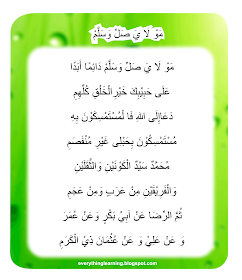 مَوْ لَا يَ صَلِّ وَسَلِّمْ
مَوْ لَا يَ صَلِّ وَسَلِّمْ دَائِمًا أَبَدًا
عَلَى حَبِيْبِكَ خَيْرِ الْخَلْقِ كُلِّهِمِ
دَعَاإِلَى اللهِ فَا لْمُسْتَمْسِكُوْنَ بِهِ
مُسْتَمْسِكُوْنَ بِحَبْلِى غَيْرَ مُنْفَصَمِ
مُحَمَّدٌ سَيِّدُ الْكَوْنَيْنِ وَالثَّقَلَيْنِ
وَالْفَرِيْقَيْنِ مِنْ عَرَبٍ وَمِنْ عَجَمِ
ثُمَّ الرِّضَا عَنْ أَبِيْ بَكْرٍ وَ عَنْ عُمَرَ
وَ عَنْ عَلِيْ وَ عَنْ عُثْمَانَ ذِيْ الْكَرَمِ
everythinglearning.blogspot.com